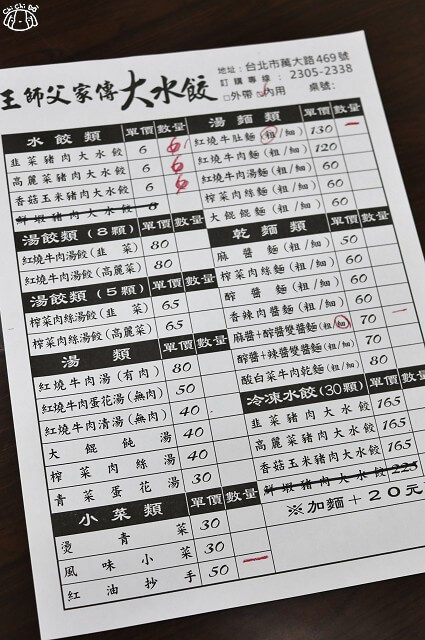 Chi Chi Bo
王師父家傳大水餃
地址：台北市萬大路469號
訂購專線：2305-2338
□外帶 □內用 桌號：
水餃類 單價 數量
韭菜豬肉大水餃 6 6
高麗菜豬肉大水餃 6 6
香菇玉米豬肉大水餃 6 6
鮮蝦豬肉大水餃 8
湯餃類（8顆） 單價 數量
紅燒牛肉湯餃（韭菜） 80
紅燒牛肉湯餃（高麗菜） 80
湯餃類（5顆） 單價 數量
榨菜肉絲湯餃（韭菜） 65
榨菜肉絲湯餃（高麗菜） 65
湯類 單價 數量
紅燒牛肉湯（有肉） 80
紅燒牛肉蛋花湯（無肉） 50
紅燒牛肉清湯（無肉） 40
大餛飩湯 40
榨菜肉絲湯 40
青菜蛋花湯 30
小菜類 單價 數量
燙青菜 30
風味小菜 30 一
紅油抄手 50
湯麵類 單價 數量
紅燒牛肚麵（粗/細） 130 一
紅燒牛肉麵（粗/細） 120
紅燒牛肉湯麵（粗/細） 60
榨菜肉絲麵（粗/細） 60
大餛飩麵（粗/細） 60
乾麵類 單價 數量
麻醬麵（粗/細） 50
榨菜肉絲麵（粗/細） 60
醡醬麵（粗/細） 60
香辣肉醬麵（粗/細） 60
麻醬+醡醬雙醬麵（粗/細） 70 一
醡醬+辣醬雙醬麵（粗/細） 70
酸白菜牛肉乾麵（粗/細） 80
冷凍水餃（30顆） 單價 數量
韭菜豬肉大水餃 165
高麗菜豬肉大水餃 165
香菇玉米豬肉大水餃 165
鮮蝦豬肉大水餃 225
※加麵+20元